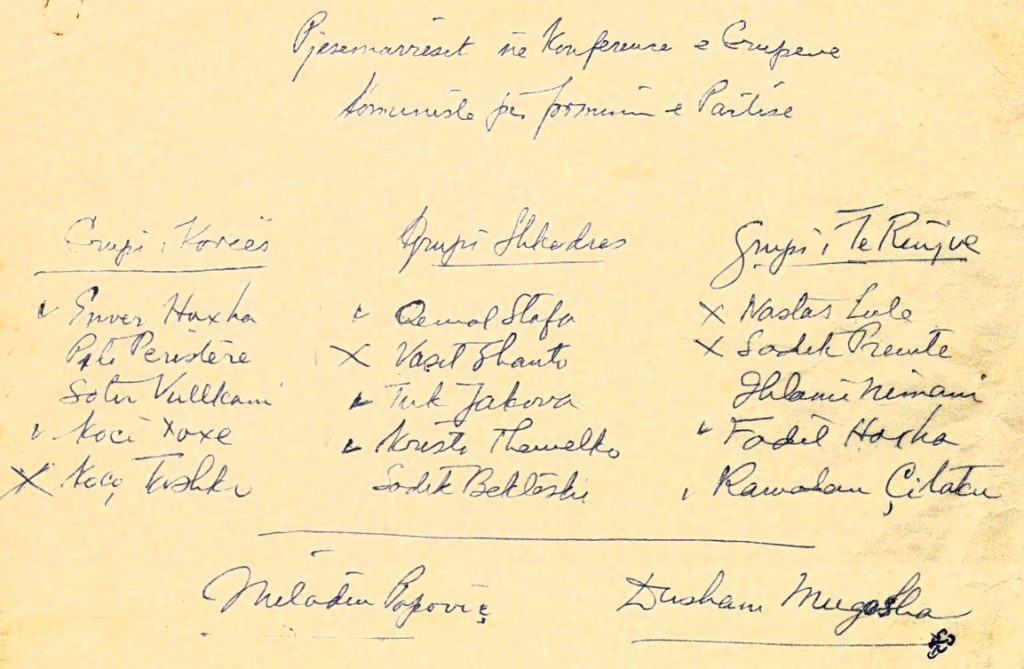 Pjesemarrëset në Konference e Grupeve
Komuniste për formimin e Partise
Grupi i Korcës
Enver Hoxha
Pilo Peristere
Sotir Vullkani
Koci Xoxe
Koço Tashko
Grupi Shkodres
Qemal Stafa
Vasil Shanto
Tuk Jakova
Kristo Themelko
Sadik Bekteshi
Grupi i Te Rinjve
Nastas Lulo
Sadik Premte
Ihlami Nimani
Fadil Hoxha
Ramadan Çitaku
Miladin Popoviç
Dushan Mugosha